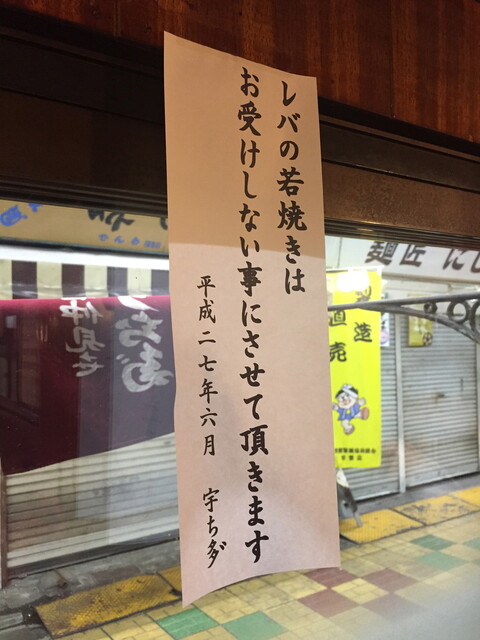 レバの若焼きは
お受けしない事にさせて頂きます
平成二七年六月　宇ち多゙
麺匠 にし
製造
直売
仲見世